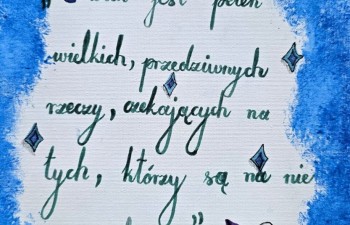 jest pełen
wielkich, przedziwnych
rzeczy, czekających na
tych, którzy są na nie
”